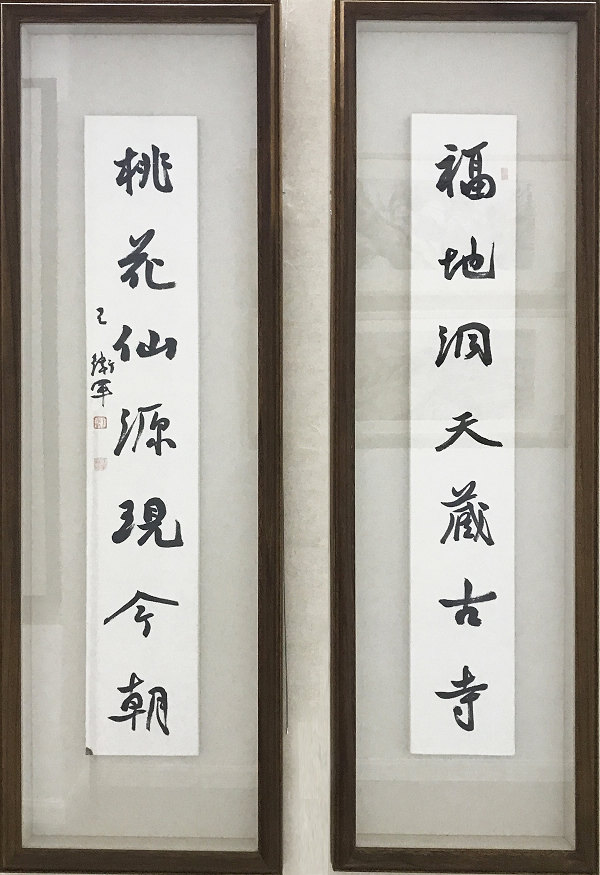 福地洞天藏古寺
桃花仙源現今朝